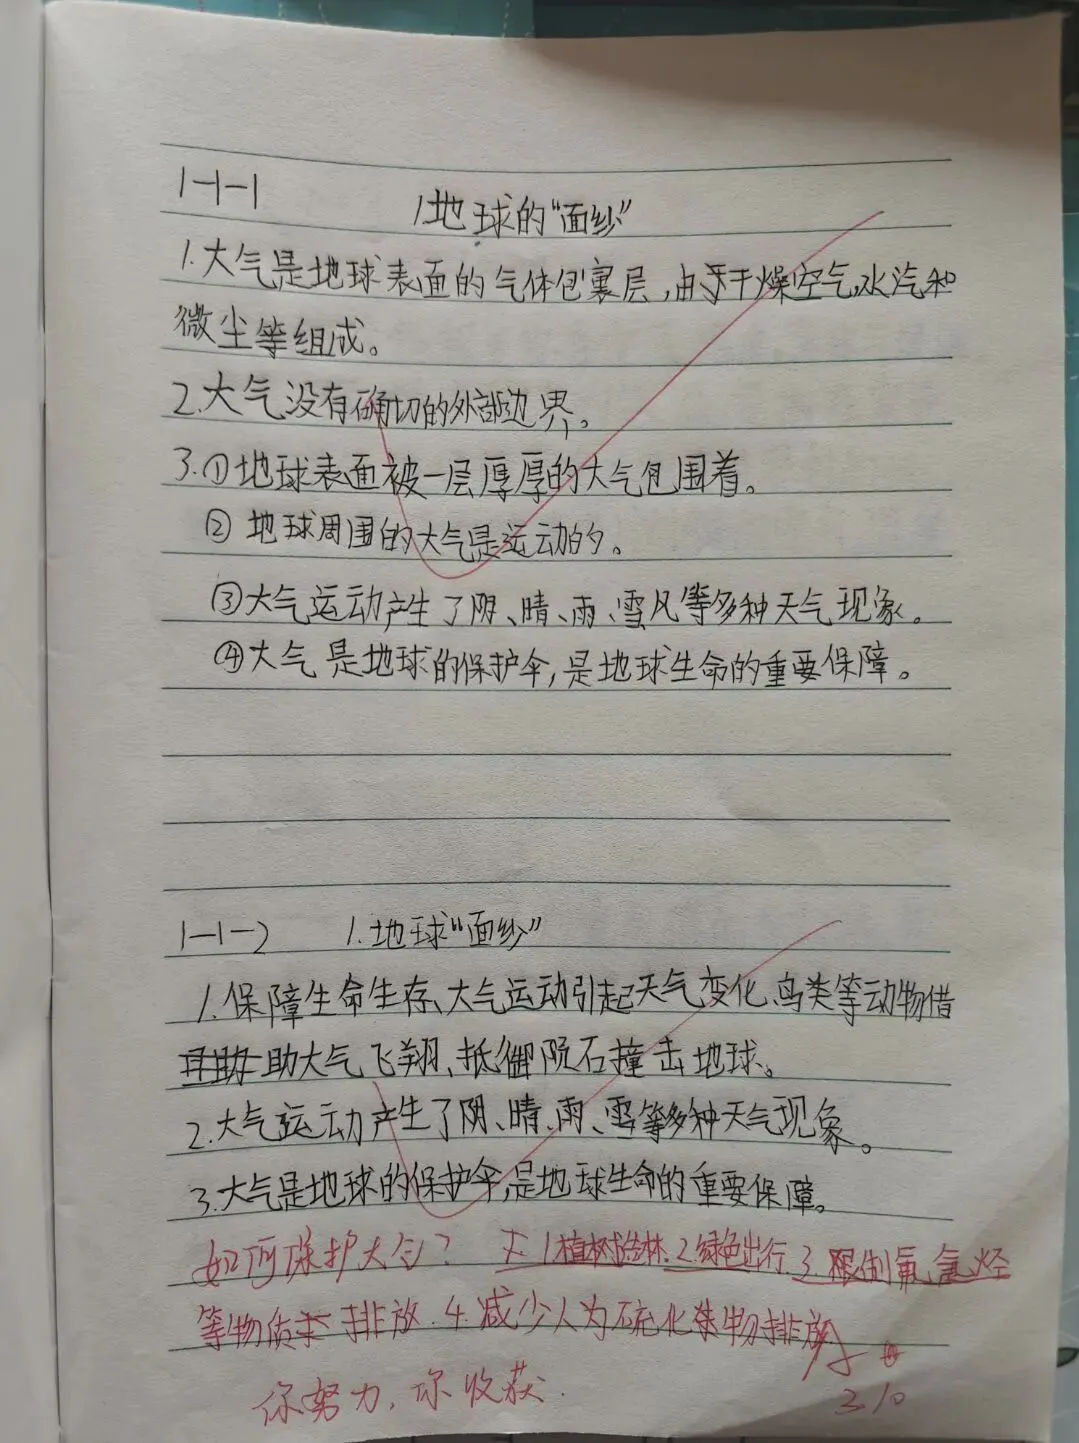 1-1-1 1.地球的“面纱”
1.大气是地球表面的气体包裹层,由于干燥空气,水汽和
微尘等组成。
2.大气没有确切的外部边界。
3.①地球表面被一层厚厚的大气包围着。
②地球周围的大气是运动的。
③大气运动产生了阴、晴、雨、雪风等多种天气现象。
④大气是地球的保护伞,是地球生命的重要保障。
1-1-2 1.地球“面纱”
1.保障生命生存、大气运动引起天气变化、鸟类等动物借
助大气飞翔、抵御陨石撞击地球。
2.大气运动产生了阴、晴、雨、雪等多种天气现象。
3.大气是地球的保护伞,是地球生命的重要保障。
如何保护大气? 1.植树造林.2.绿色出行.3.限制氟氯烃
等物质 排放.4.减少人为硫化物排放
你努力,你收获.
3.10